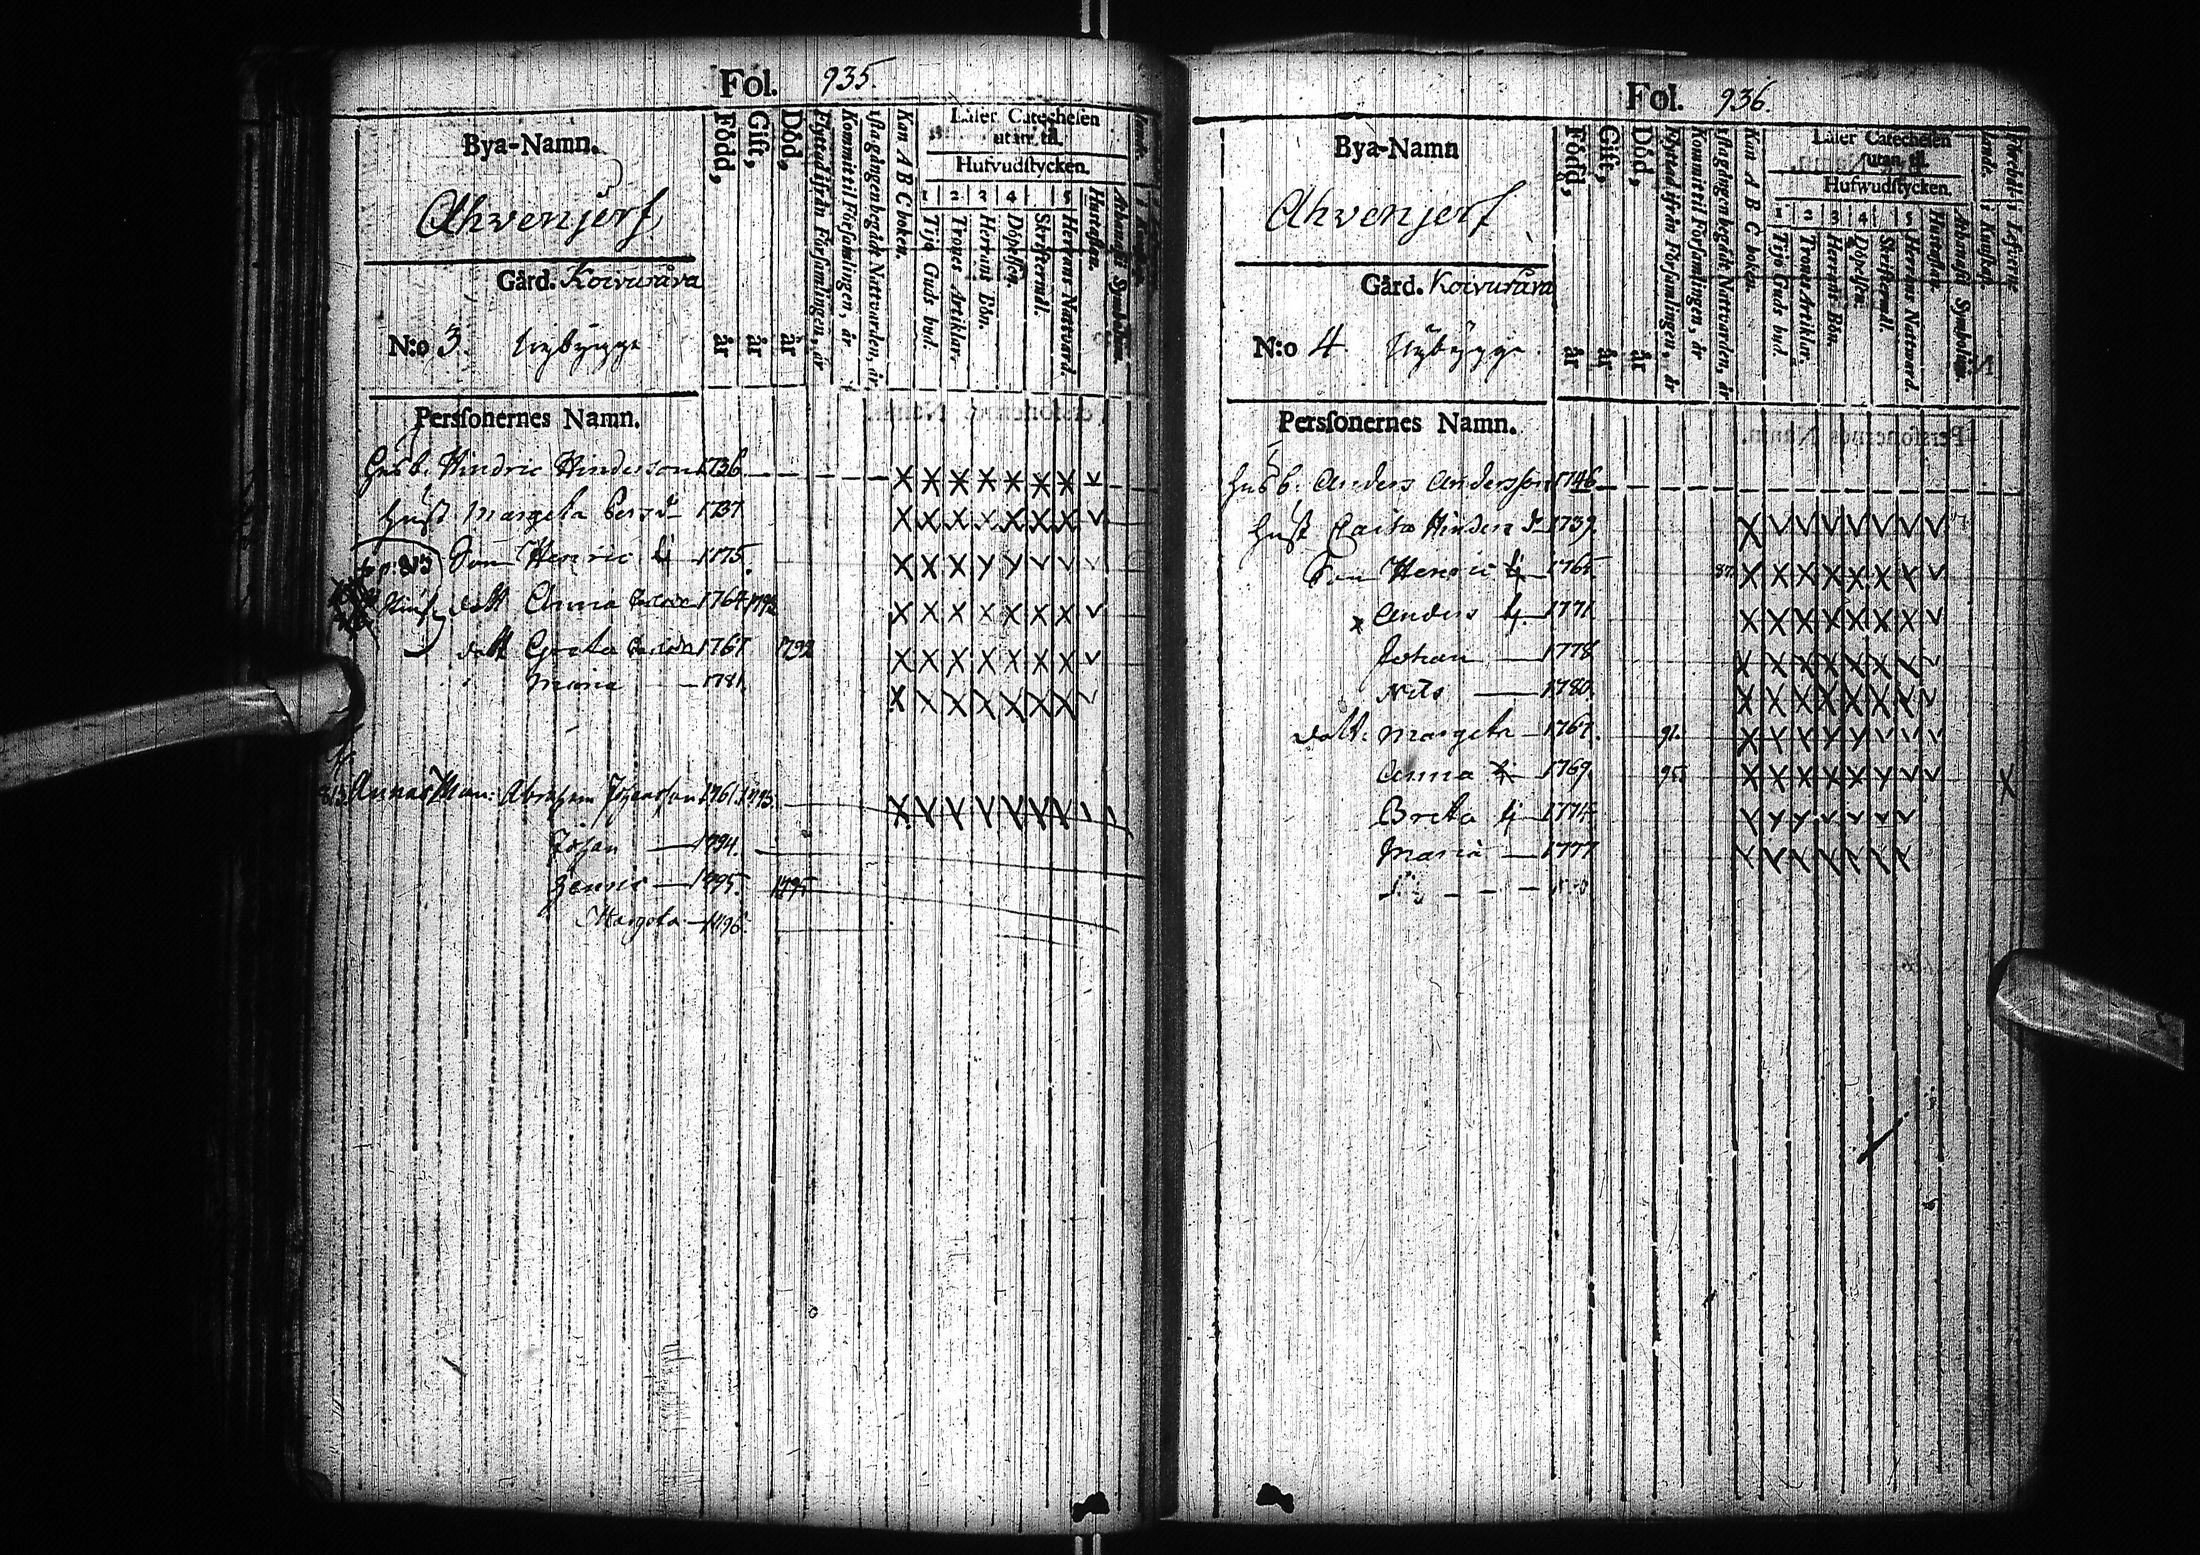 Fol. 935.
Bya-Namn.
Ahvenjerf
Gård. Koivuvåra
N:o 3. Nybygge
Född, år
Gift, år
Död, år
Flyttad ifrån Församlingen, år
Kommit til Församlingen, år
sista gången begådt Nattvarden, år
Kan A B C boken.
Läser Catechesen
utan til.
Hufvudstycken.
1 2 3 4 5
Tijo Guds bud.
Trones Artiklar.
Herrans Bön.
Döpelsen.
Skriftermål.
Herrans Nattvard.
Hustaflan.
Athanasii Symbolum.
Personernes Namn.
Husb. Hindric Hindersson 1736
Hust Margeta Persdr 1737
Son Henric 1775.
dott Anna 1764 1792
dott Greta 1767 1792
Maria 1781
Annas Man: Abraham 1761. 1793
Johan 1794.
Henric 1795. 1795
Margeta 1796.
Fol. 936.
Bya-Namn
Ahvenjerf
Gård. Koivuvåra
N:o 4. Nybygge.
Född, år
Gift, år
Död, år
Flyttad ifrån Församlingen, år
Kommit til Församlingen, år
sista gången begådt Nattvarden, år
Kan A B C boken.
Läser Catechesen
utan til.
Hufwudstycken.
1 2 3 4 5
Tijo Guds bud.
Trones Artiklar.
Herrans Bön.
Döpelsen.
Skriftermål.
Herrans Nattward.
Hustaflan.
Athanasii Symbolum.
Personernes Namn.
Husb. Anders Andersson 1746
Hust Caisa Hinders dr 1739.
Son Henric 1765 87
x Anders 1771
Johan 1778
Nils 1780
dott. Margeta 1767. 91.
Anna 1769 95
Breta 1774
Maria 1777